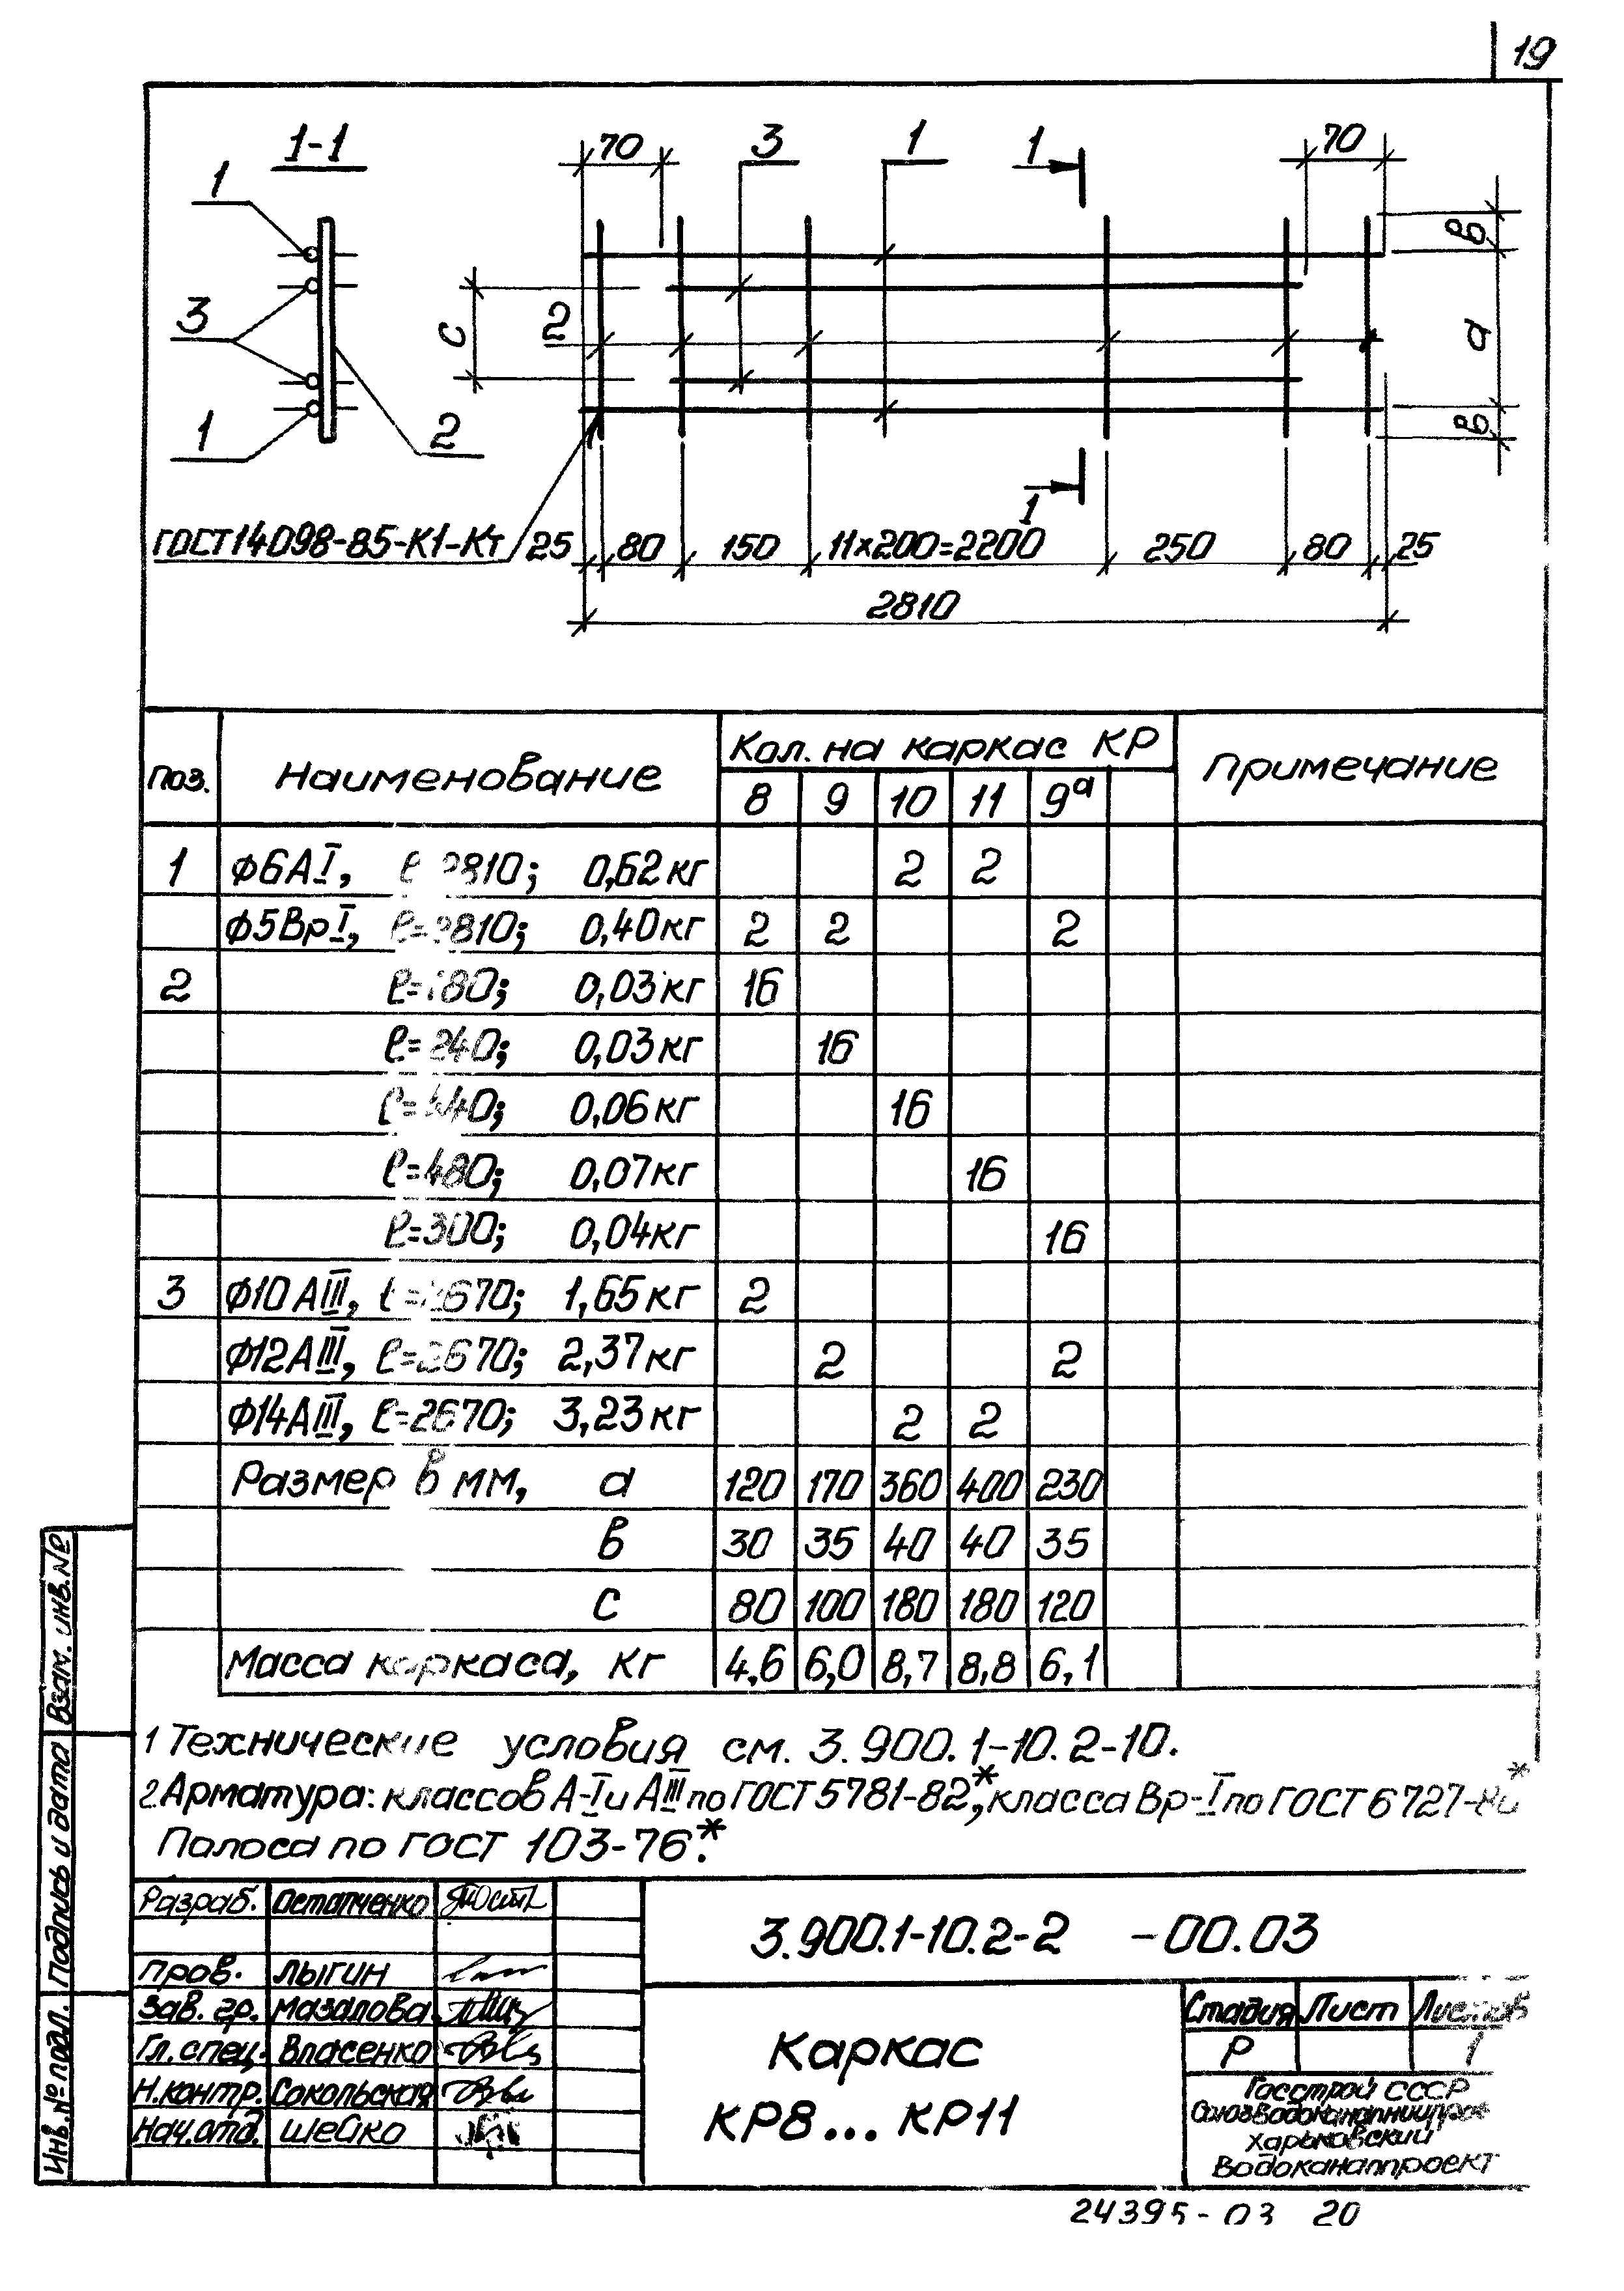 19
1-1
1
3
1
2
70
3
1
1
70
в
а
в
с
2
1
ГОСТ 14098-85-К1-Кт
25 80 150 11x200=2200 250 80 25
2810
Поз. Наименование Кол. на каркас КР Примечание
8 9 10 11 9а
1 ф6АI, ℓ=2810; 0,62кг 2 2
ф5ВрI, ℓ=2810; 0,40кг 2 2 2
2 ℓ=180; 0,03кг 16
ℓ=240; 0,03кг 16
ℓ=440; 0,06кг 16
ℓ=480; 0,07кг 16
ℓ=300; 0,04кг 16
3 ф10АIII, ℓ=2670; 1,65кг 2
ф12АIII, ℓ=2670; 2,37кг 2 2
ф14АIII, ℓ=2670; 3,23кг 2 2
Размер в мм, а 120 170 360 400 230
в 30 35 40 40 35
с 80 100 180 180 120
Масса каркаса, кг 4,6 6,0 8,7 8,8 6,1
1 Технические условия см. 3.900.1-10.2-10.
2. Арматура: классов А-I и АIII по ГОСТ 5781-82*, класса Вр-I по ГОСТ 6727-
Полоса по ГОСТ 103-76*.
Взам. инв. №
Подпись и дата
Инв. № подл.
Разраб. Остапченко
Пров. Лыгин
Зав. гр. Мазалова
Гл. спец. Власенко
Н.контр. Сокольская
Нач.отд. Шейко
3.900.1-10.2-2 -00.03
Каркас
КР8... КР11
Стадия Лист Листов
Р 1
Госстрой СССР
Союзводоканалниипроект
Харьковский
Водоканалпроект
24395-03 20